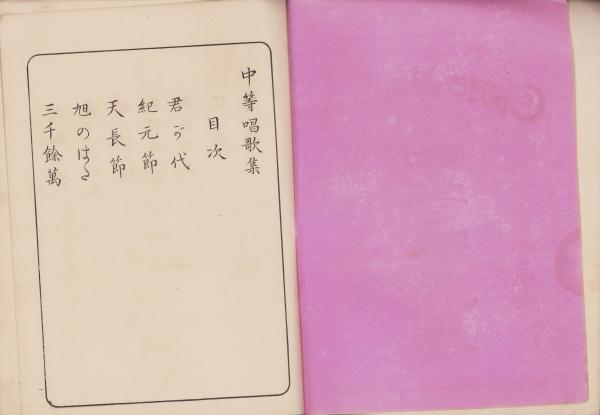 中等唱歌集
目次
君が代
紀元節
天長節
旭のはた
三千餘萬